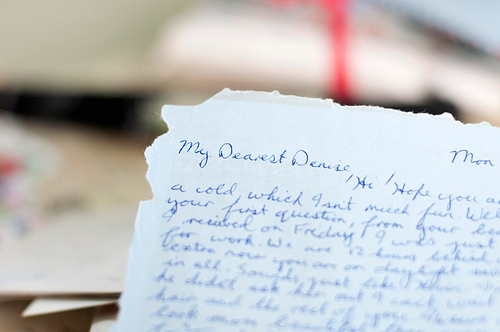 My Dearest Denise, Mon
Hi! Hope you a
a cold, which isn't much fun. We
your first question, from your
I received on Friday. I was just
for work. We are 12 hours behind
(extra now you are on daylight sa
in all. Sounds just like
he didn't ask her out. I can't wait
hair and the rest of you. I
look more beautiful